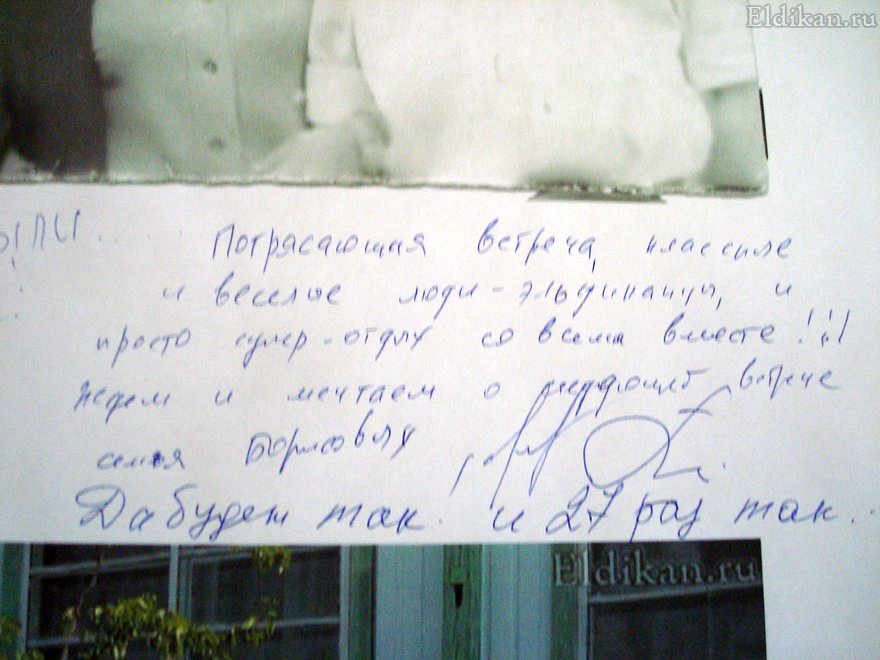 Eldikan.ru
ыли.....
Потрясающая встреча, классные
и веселые люди - эльдиканцы, и
просто супер-отдых со всеми вместе!!!
Ждем и мечтаем о следующей встрече
семья Борисовых
Да будет так. и 27 раз так...
Eldikan.ru